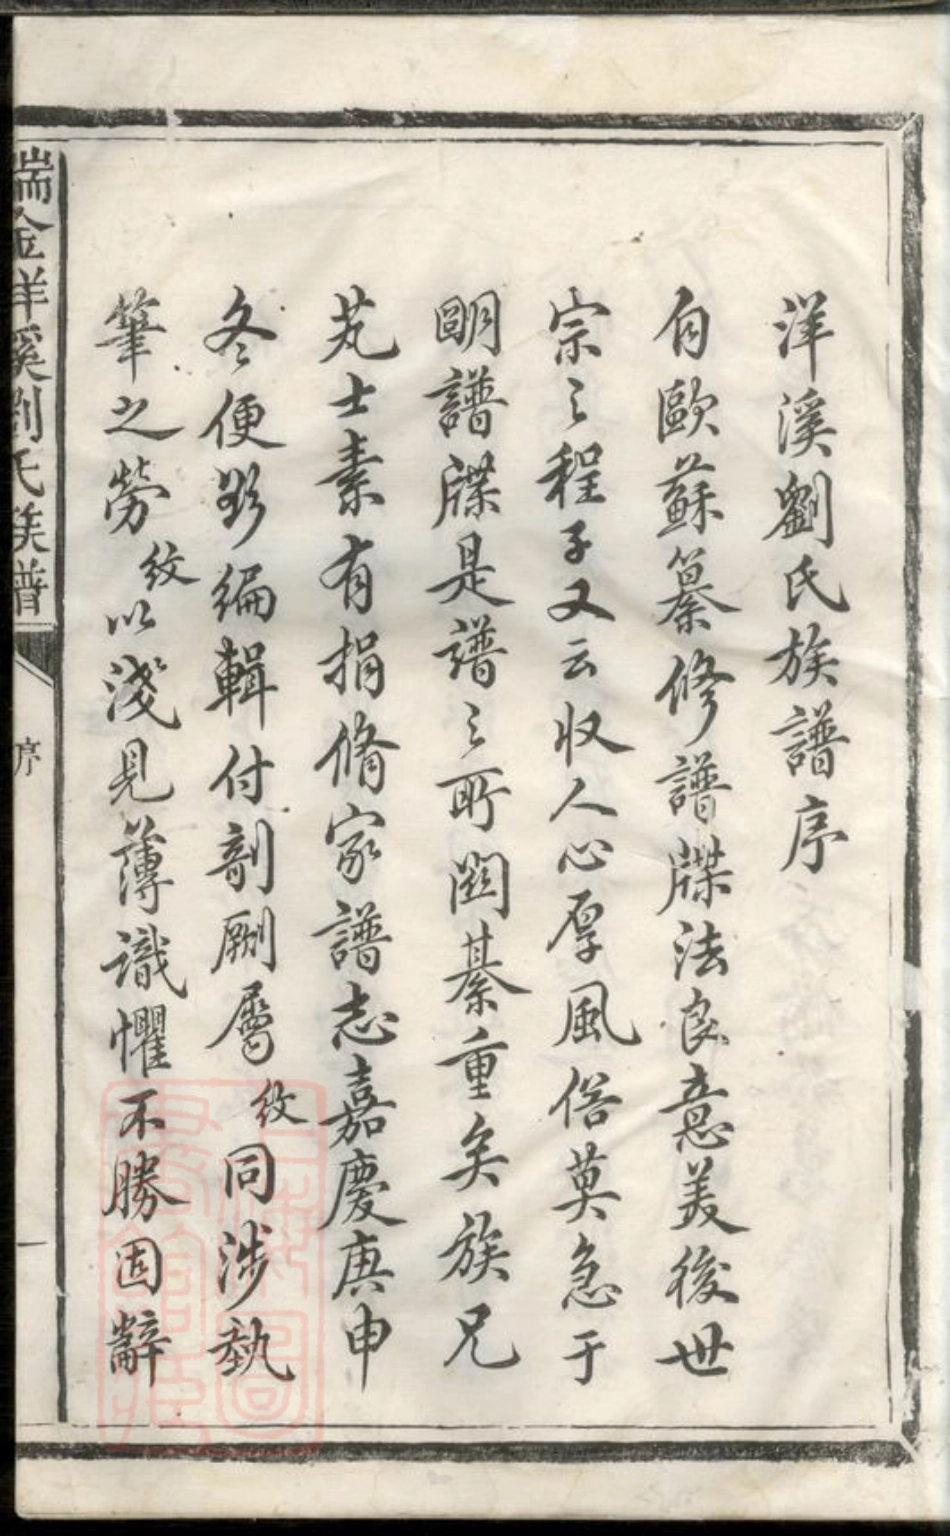 洋溪劉氏族譜序
自歐蘇纂修譜牒法良意美後世
宗之程子又云収人心厚風俗莫急于
明譜牒是譜之所関綦重矣族兄
芃士素有捐脩家譜志嘉慶庚申
冬便欵編輯付剞劂屬紋同涉執
筆之勞紋以淺見薄識懼不勝固辭
瑞金洋溪劉氏族譜
序
一